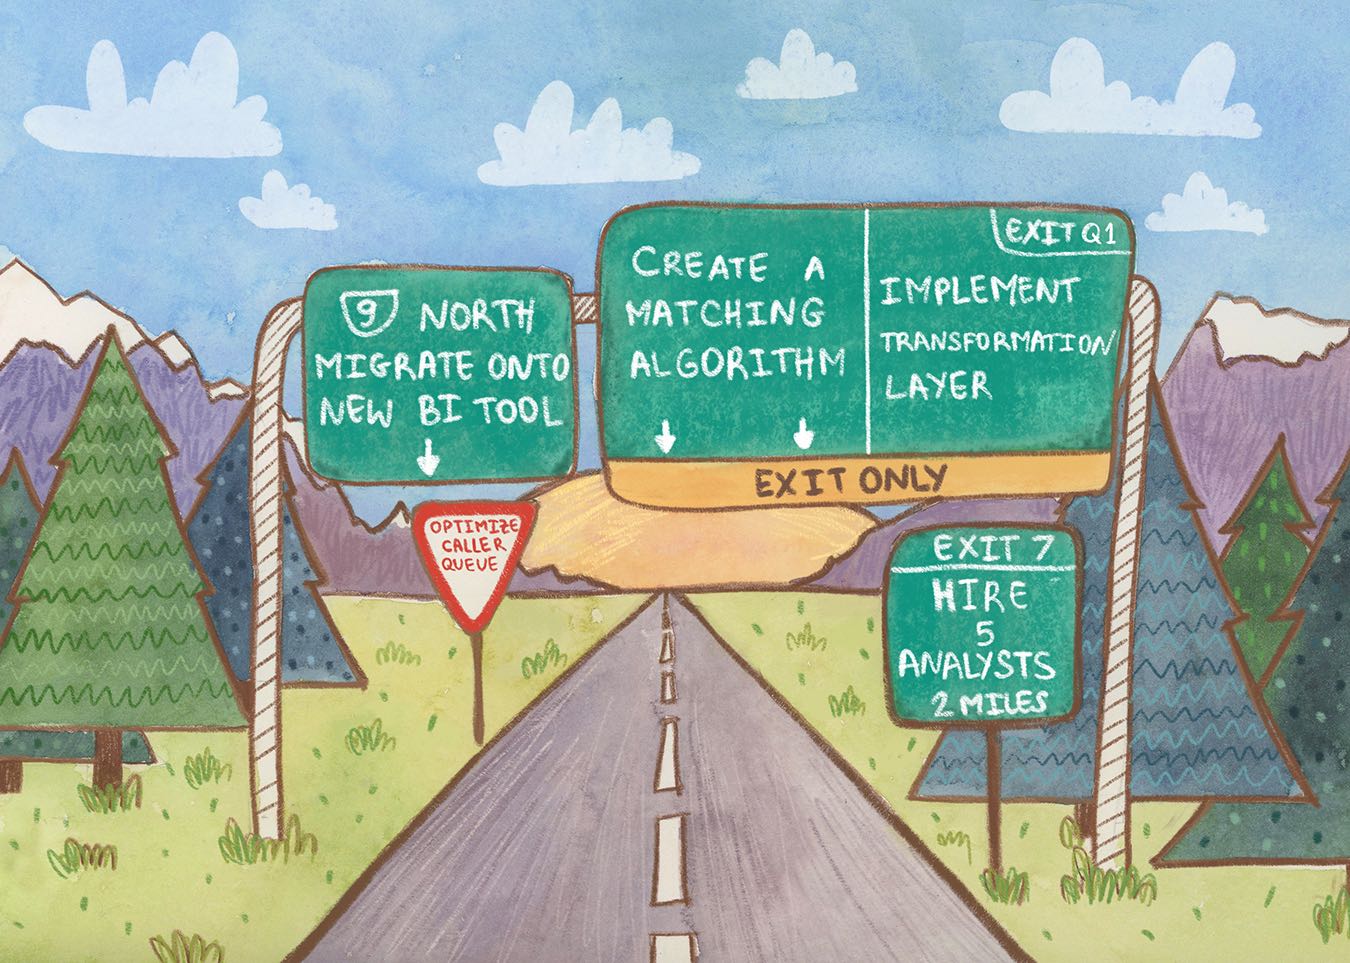 9 NORTH
MIGRATE ONTO
NEW BI TOOL
CREATE A
MATCHING
ALGORITHM
EXIT Q1
IMPLEMENT
TRANSFORMATION
LAYER
EXIT ONLY
OPTIMIZE
CALLER
QUEUE
EXIT 7
HIRE
5
ANALYSTS
2 MILES